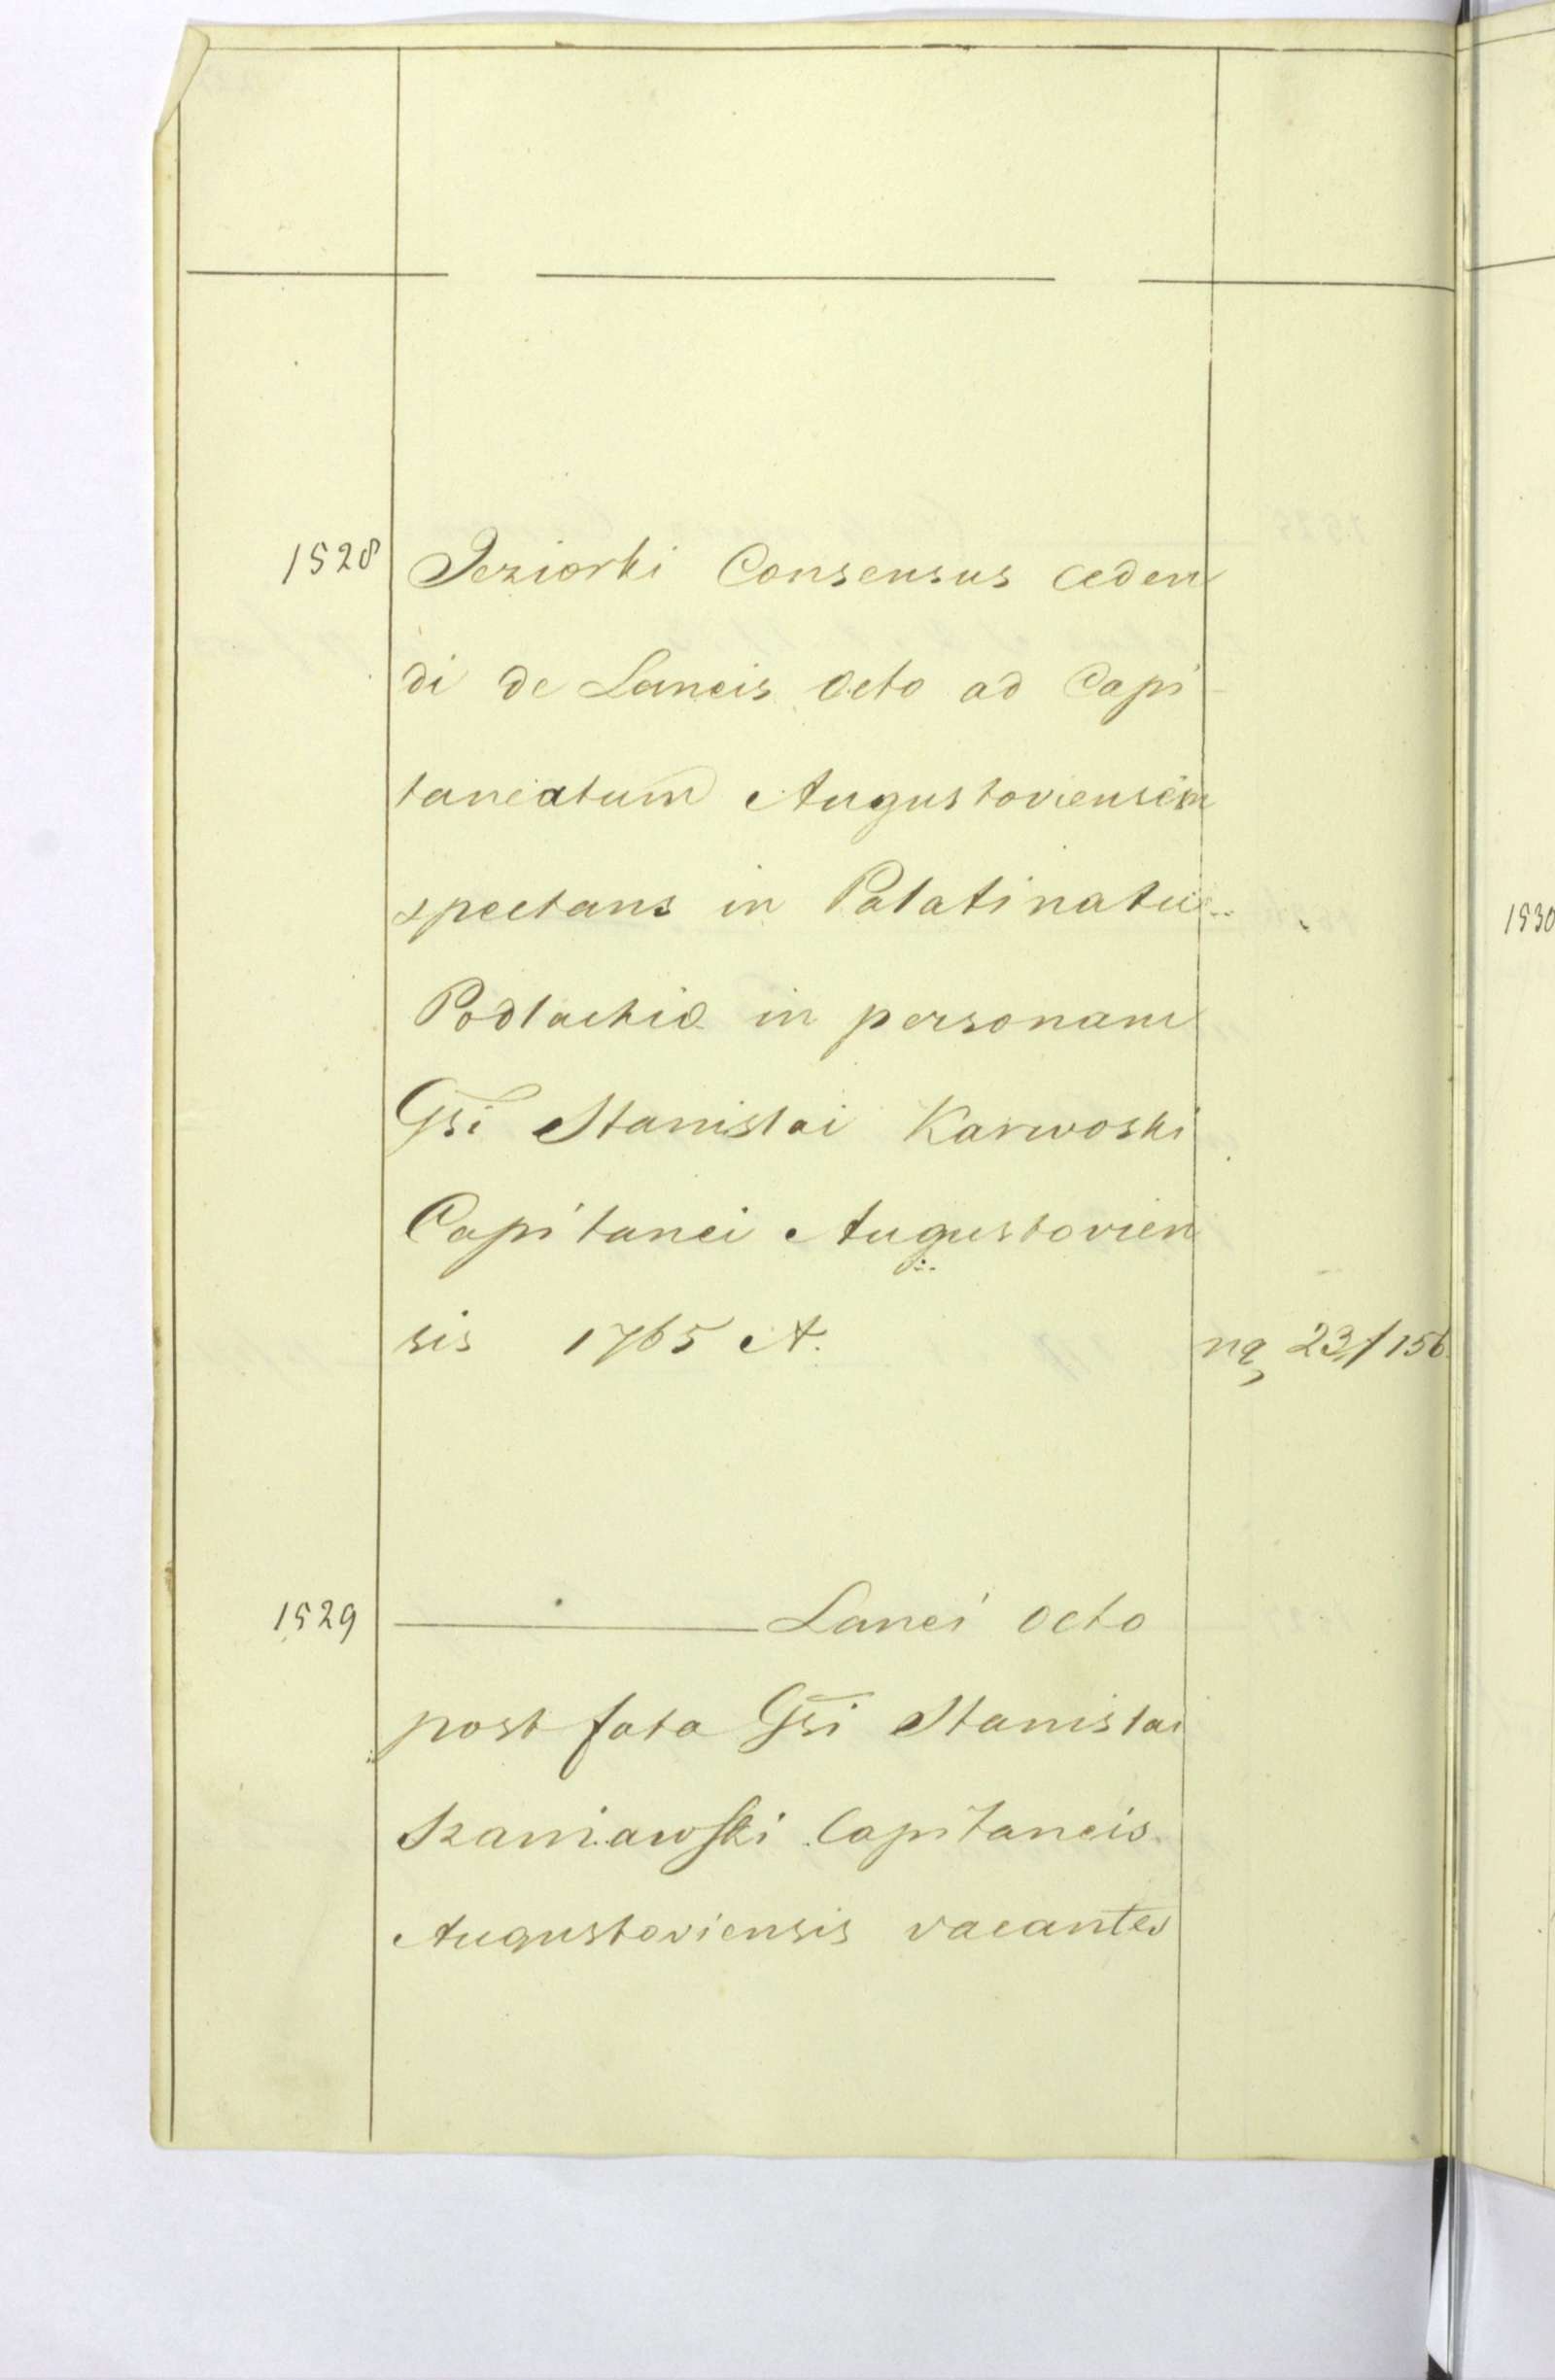 1528 Jeziorki Consensus ceden
di de Laneis Octo ad Capi
taneatum Augustoviensem
spectans in Palatinatu
Podlachiæ in personam
Gsi Stanislai Karwoski
Capitanei Augustovien
sis 1765 A. nq 23 f 156.
1529 ——— Lanei Octo
post fata Gsi Stanislai
Szaniawski Capitaneis
Augustoviensis vacantes
1530